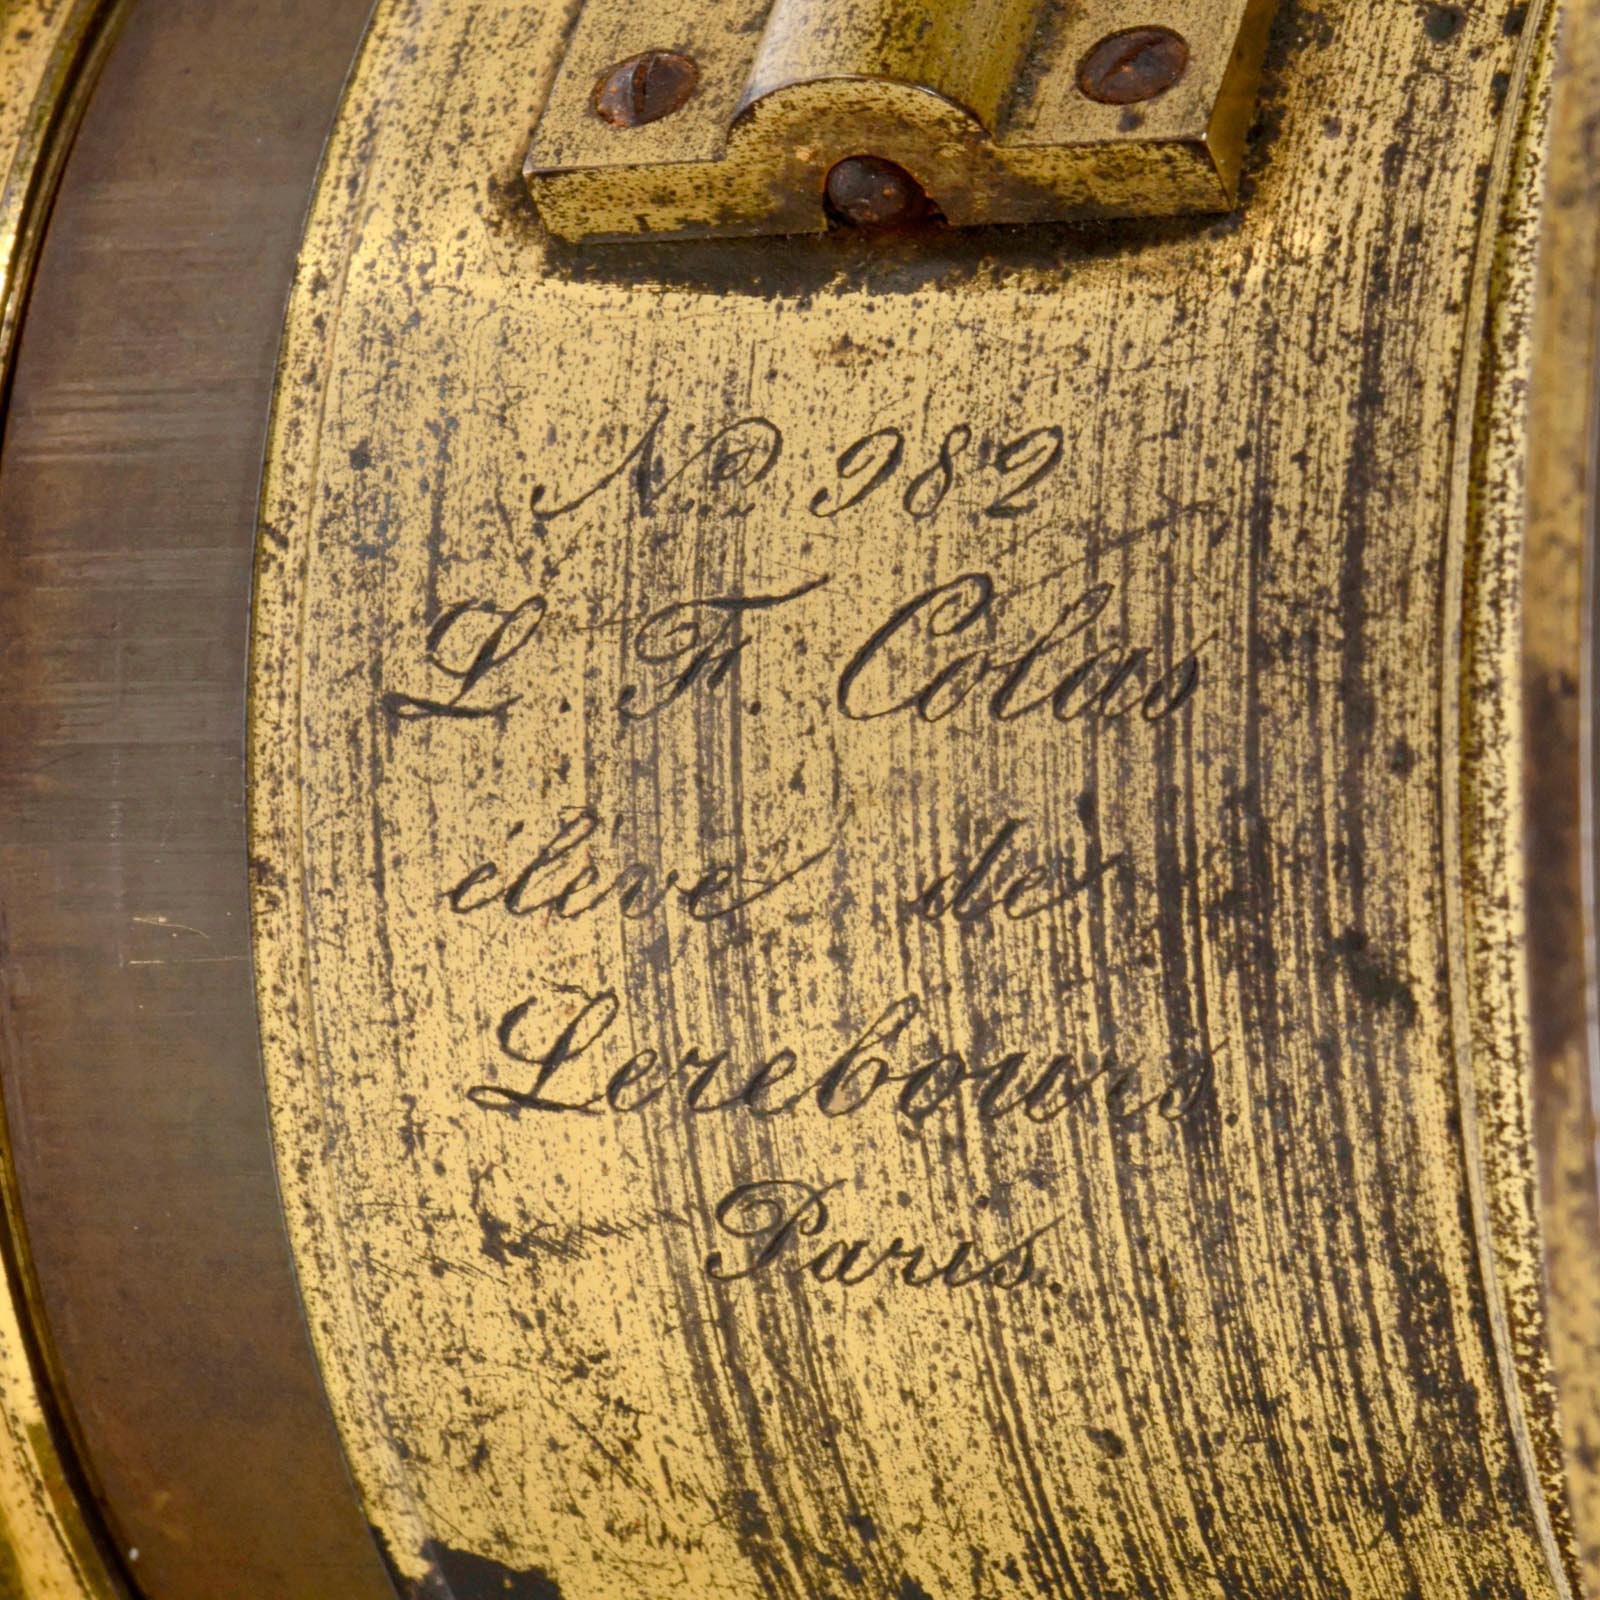 No 982
L. F. Colas
éléve de
Lerebours.
Paris.